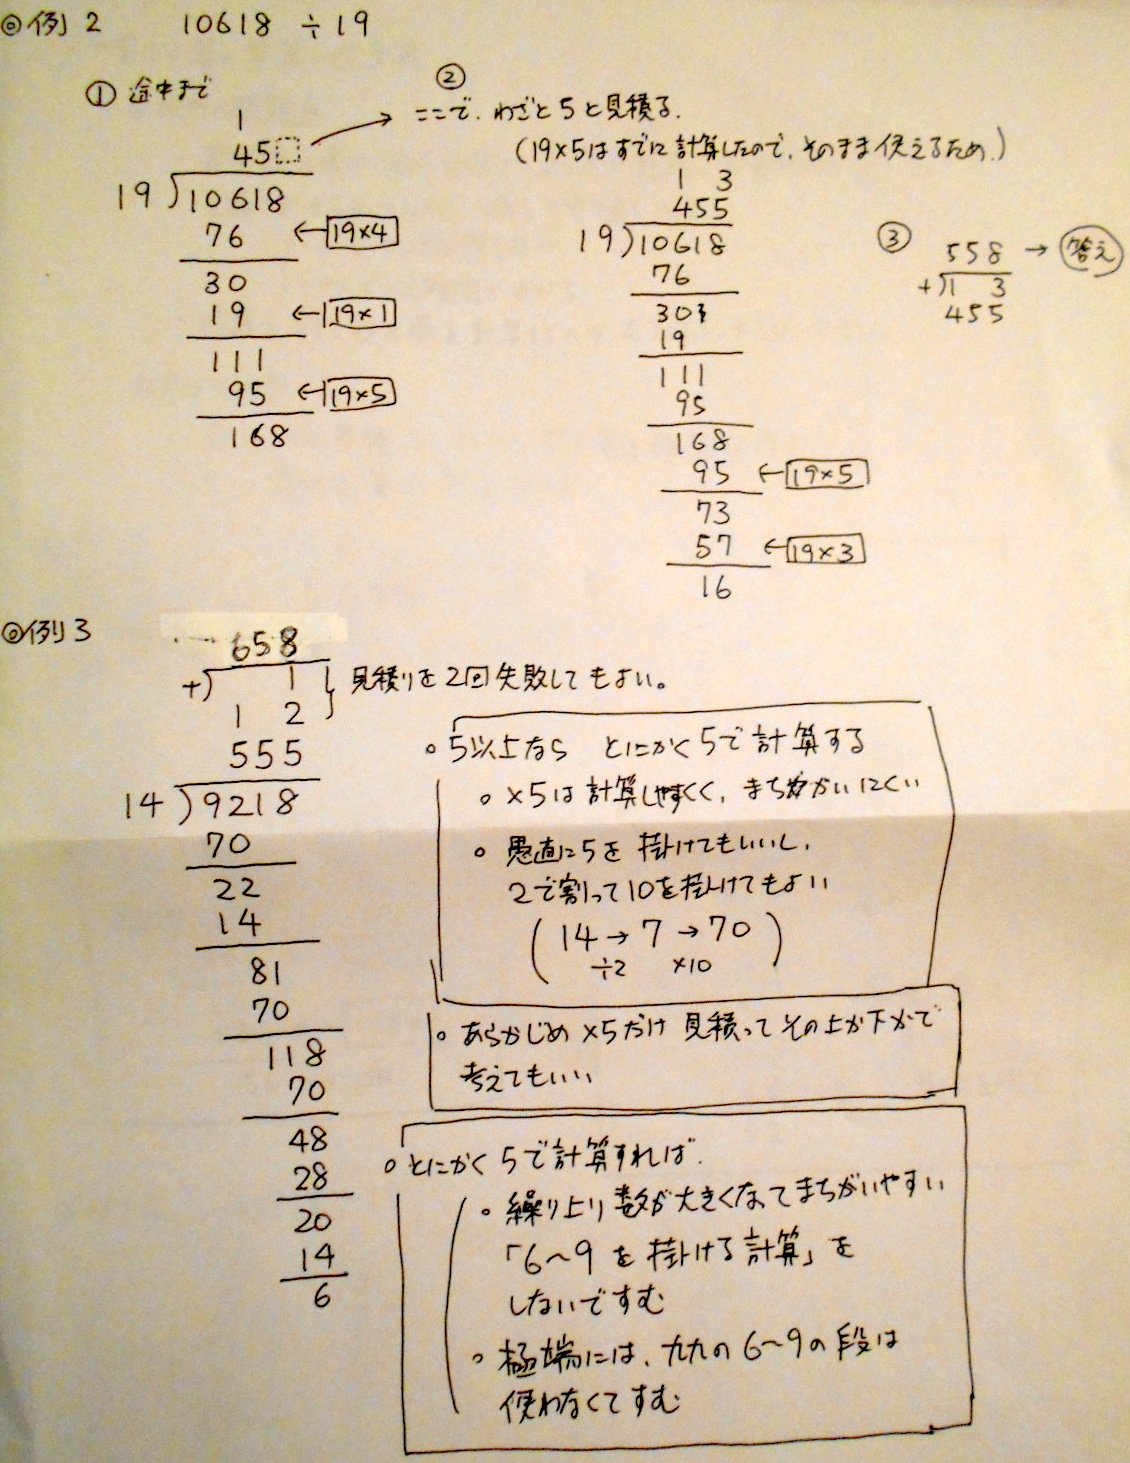 ◎例2 10618 ÷19
① 途中まで
1
45
19)10618
76 ←19×4
30
19 ←19×1
111
95 ←19×5
168
②
ここで、わざと5と見積る.
(19×5はすでに計算したので、そのまま使えるため.)
1 3
455
19)10618
76
303
19
111
95
168
95 ←19×5
73
57 ←19×3
16
③ 558 → 答え
+)1 3
455
◎例3
658
+) 1
1 2
見積りを2回失敗してもよい。
555
14)9218
70
22
14
81
70
118
70
48
28
20
14
6
○5以上なら とにかく5で計算する
○×5は計算しやすくく、まちがいにくい
○愚直に5を掛けてもいいし、
2で割って10を掛けてもよい
(14→7→70)
÷2 ×10
○あらかじめ×5だけ見積ってその上か下かで
考えてもいい
○とにかく5で計算すれば、
○繰り上り数が大きくなってまちがいやすい
「6〜9を掛ける計算」を
しないですむ
○極端には、九九の6〜9の段は
使わなくてすむ